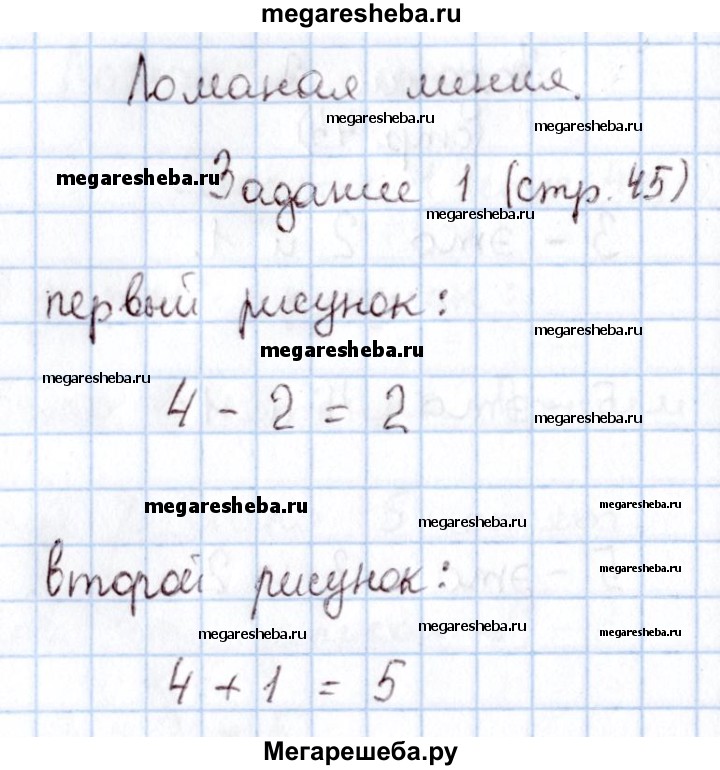 megaresheba.ru
Ломаная линия.
megaresheba.ru
megaresheba.ru
megaresheba.ru
Задание 1 (стр. 45)
megaresheba.ru
первый рисунок:
megaresheba.ru
megaresheba.ru
megaresheba.ru
4 - 2 = 2
megaresheba.ru
megaresheba.ru
megaresheba.ru
megaresheba.ru
второй рисунок:
megaresheba.ru
megaresheba.ru
megaresheba.ru
megaresheba.ru
4 + 1 = 5
Мегарешеба.ру